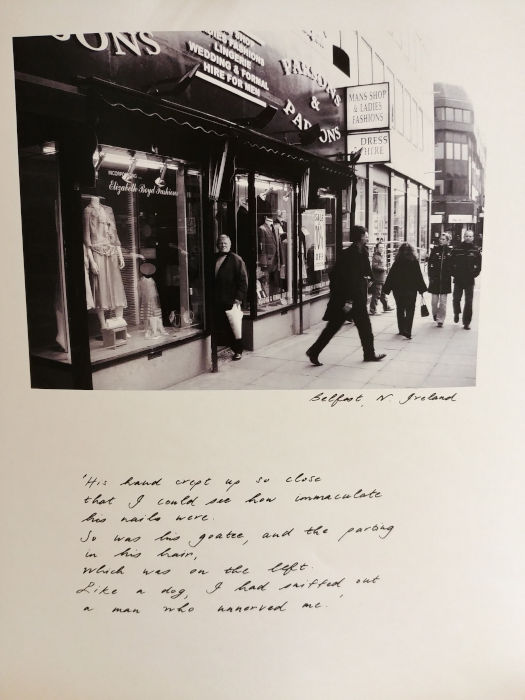 ONS
LADIES FASHIONS
LINGERIE
WEDDING & FORMAL
HIRE FOR MEN
PARSONS
&
PARSONS
MANS SHOP
& LADIES
FASHIONS
DRESS
HIRE
INCORPORATING
Elizabeth Boyd Fashions
SALE
Belfast, N. Ireland
'His hand crept up so close
that I could see how immaculate
his nails were.
So was his goatee, and the parting
in his hair,
which was on the left.
Like a dog, I had sniffed out
a man who unnerved me.'